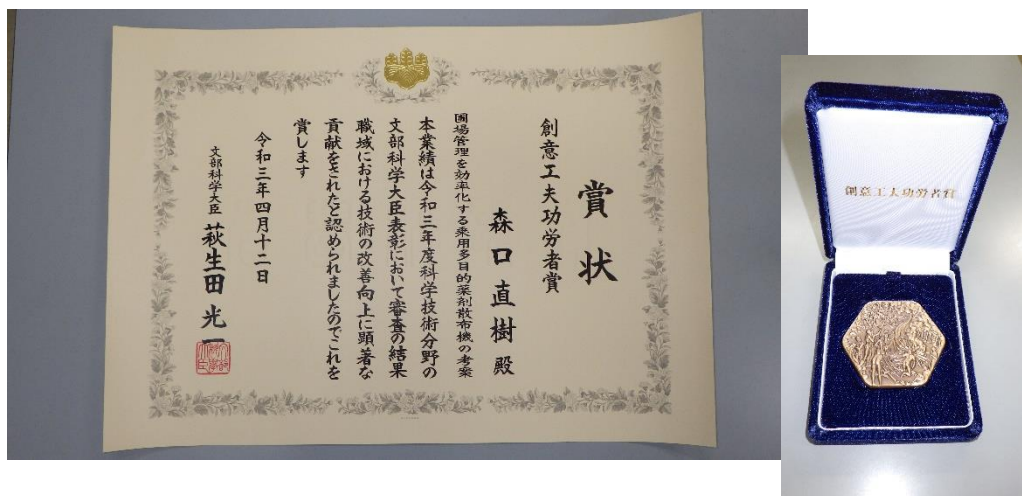 賞状
創意工夫功労者賞
森口直樹殿
圃場管理を効率化する乗用多目的薬剤散布機の考案
本業績は令和三年度科学技術分野の
文部科学大臣表彰において審査の結果
職域における技術の改善向上に顕著な
貢献をされたと認められましたのでこれを
賞します
令和三年四月十二日
文部科学大臣 萩生田光一
創意工夫功労者賞